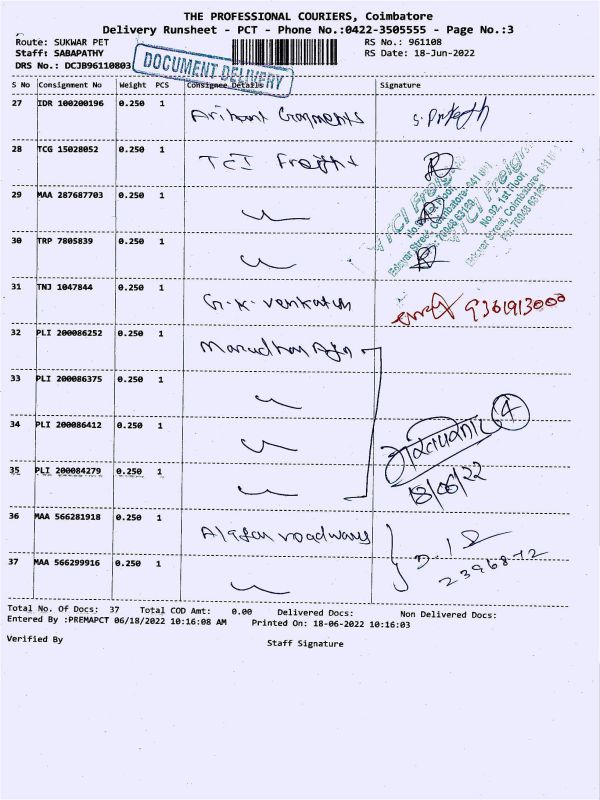 THE PROFESSIONAL COURIERS, Coimbatore
Delivery Runsheet - PCT - Phone No.:0422-3505555 - Page No.:3
Route: SUKWAR PET RS No.: 961108
Staff: SABAPATHY RS Date: 18-Jun-2022
DRS No.: DCJB96110803
DOCUMENT DELIVERY
S No Consignment No Weight PCS Consignee Details Signature
27 IDR 100200196 0.250 1 Arihant Garments
28 TCG 15028052 0.250 1 TCI Freight
29 MAA 287687703 0.250 1
30 TRP 7805839 0.250 1
TCI Freight
No.92, 1st Floor,
31 TNJ 1047844 0.250 1 G.K. Venkatesh 9361913000
32 PLI 200086252 0.250 1 Marudhar
33 PLI 200086375 0.250 1
34 PLI 200086412 0.250 1 4
35 PLI 200084279 0.250 1 18/06/22
36 MAA 566281918 0.250 1 roadways
37 MAA 566299916 0.250 1 2396872
Total No. Of Docs: 37 Total COD Amt: 0.00 Delivered Docs: Non Delivered Docs:
Entered By :PREMAPCT 06/18/2022 10:16:08 AM Printed On: 18-06-2022 10:16:03
Verified By Staff Signature